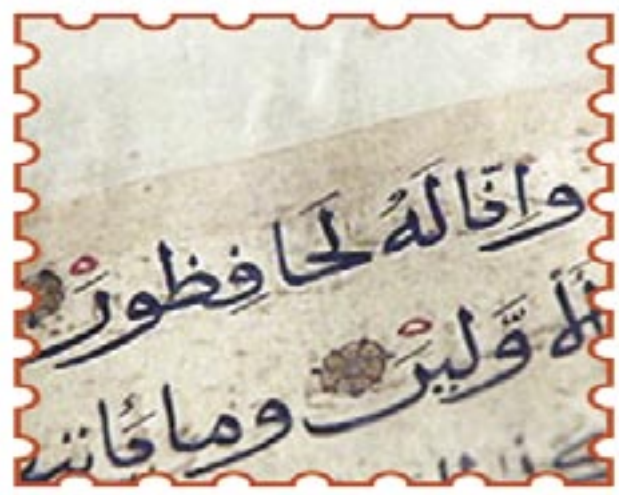 وَاِنَّا لَهُ لَحَافِظُونَ
الْأَوَّلِينَ وَمَا يَأْتِي